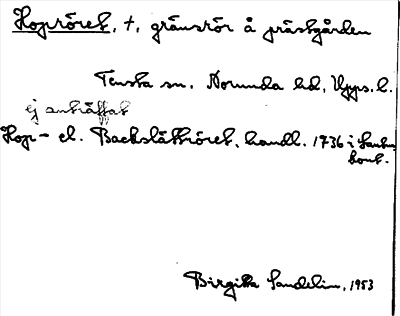 Hopröret, †, gränsrör å prästgården
Tensta sn, Norunda hd, Upps. l.
ej anträffat
Hop- el. Backslättröret, handl. 1736 i Lantm.
kont.
Birgitta Sandelin, 1953